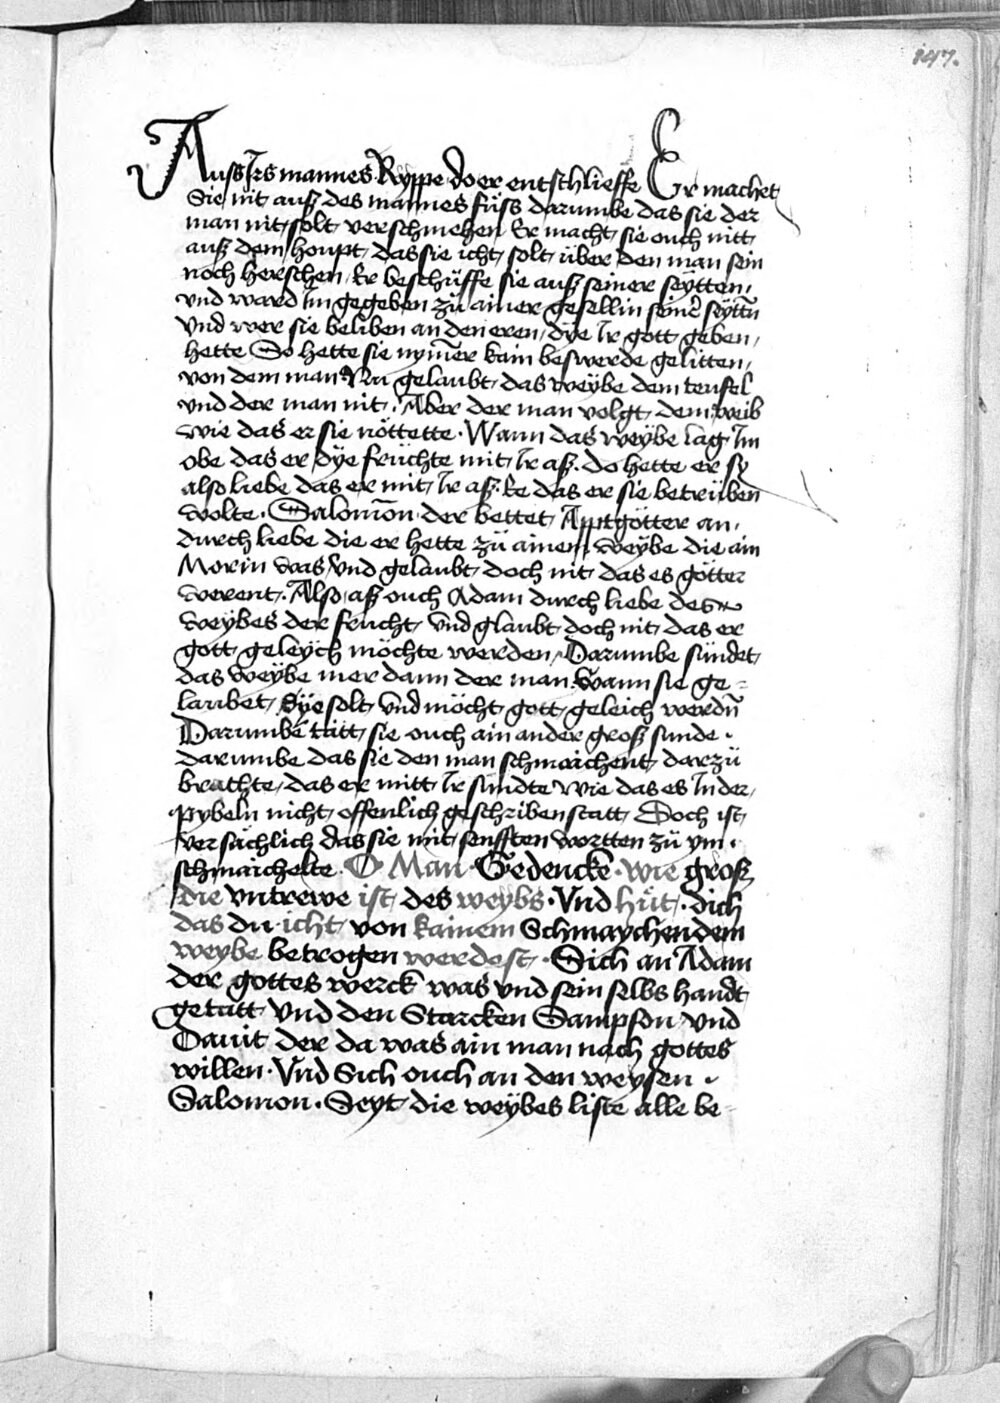 147.
Auss Irs mannes Ryppe do er entschlieffe Er machet
Sie nit auß des mannes füss darumbe das sie der
man nit solt verschmehen Er macht sie ouch nitt
auß dem houpt das sie icht solt über den man sein
noch herschen Er beschüffe sie auß seiner seÿtten,
vnd ward Im gegeben zü ainer gesellin seiner seÿttn̄
Vnd wer sie beliben an den eren, dÿe Ir gott geben,
hette So hette sie nym̄er kain beswerde gelitten,
von dem man Nu gelaubt das weÿbe dem teufel
vnd der man nit. Aber der man volgt dem weib
wie das er sie nöttette. Wann das weÿbe lag Im
obe das er dÿe früchte mit Ir aß. do hette er sy
also liebe das er mit Ir aß. Ee das er sie betrüben
wolte. Salomōn der bettet Apptgötter an,
durch liebe die er hette zü ainem weÿbe die ain
Morin was vnd gelaubt doch nit das es götter
werent. Also aß ouch Adam durch liebe des
weÿbes der frucht vnd glaubt doch nit das er
gott geleÿch möchte werden, Darumbe sündet
das weÿbe mer dann der man. Wann sie ge=
laubet, Sÿe solt vnd möcht gott geleich werdn̄
Darumbe tätt sie ouch ain ander groß sunde.
darumbe das sie den man schmaichent darzü
brachte, das er mitt Ir sündte wie das es In der,
pybeln nicht offenlich geschriben statt Doch ist
versächlich das sie mit senfften wortten zü ym.
schmaichelte. O Man Gedencke. wie groß
die vntrewe ist des weybs. Vnd hüt. dich
das du icht von kainem Schmaychendem
weybe betrogen werdest. Sich an Adam
der gottes werck was vnd sein selbs handt
getatt Vnd den Starcken Sampson vnd
Dauit der da was ain man nach gottes
willen. Vnd Sich ouch an den weysen.
Salomon. Seyt die weÿbes liste alle be=